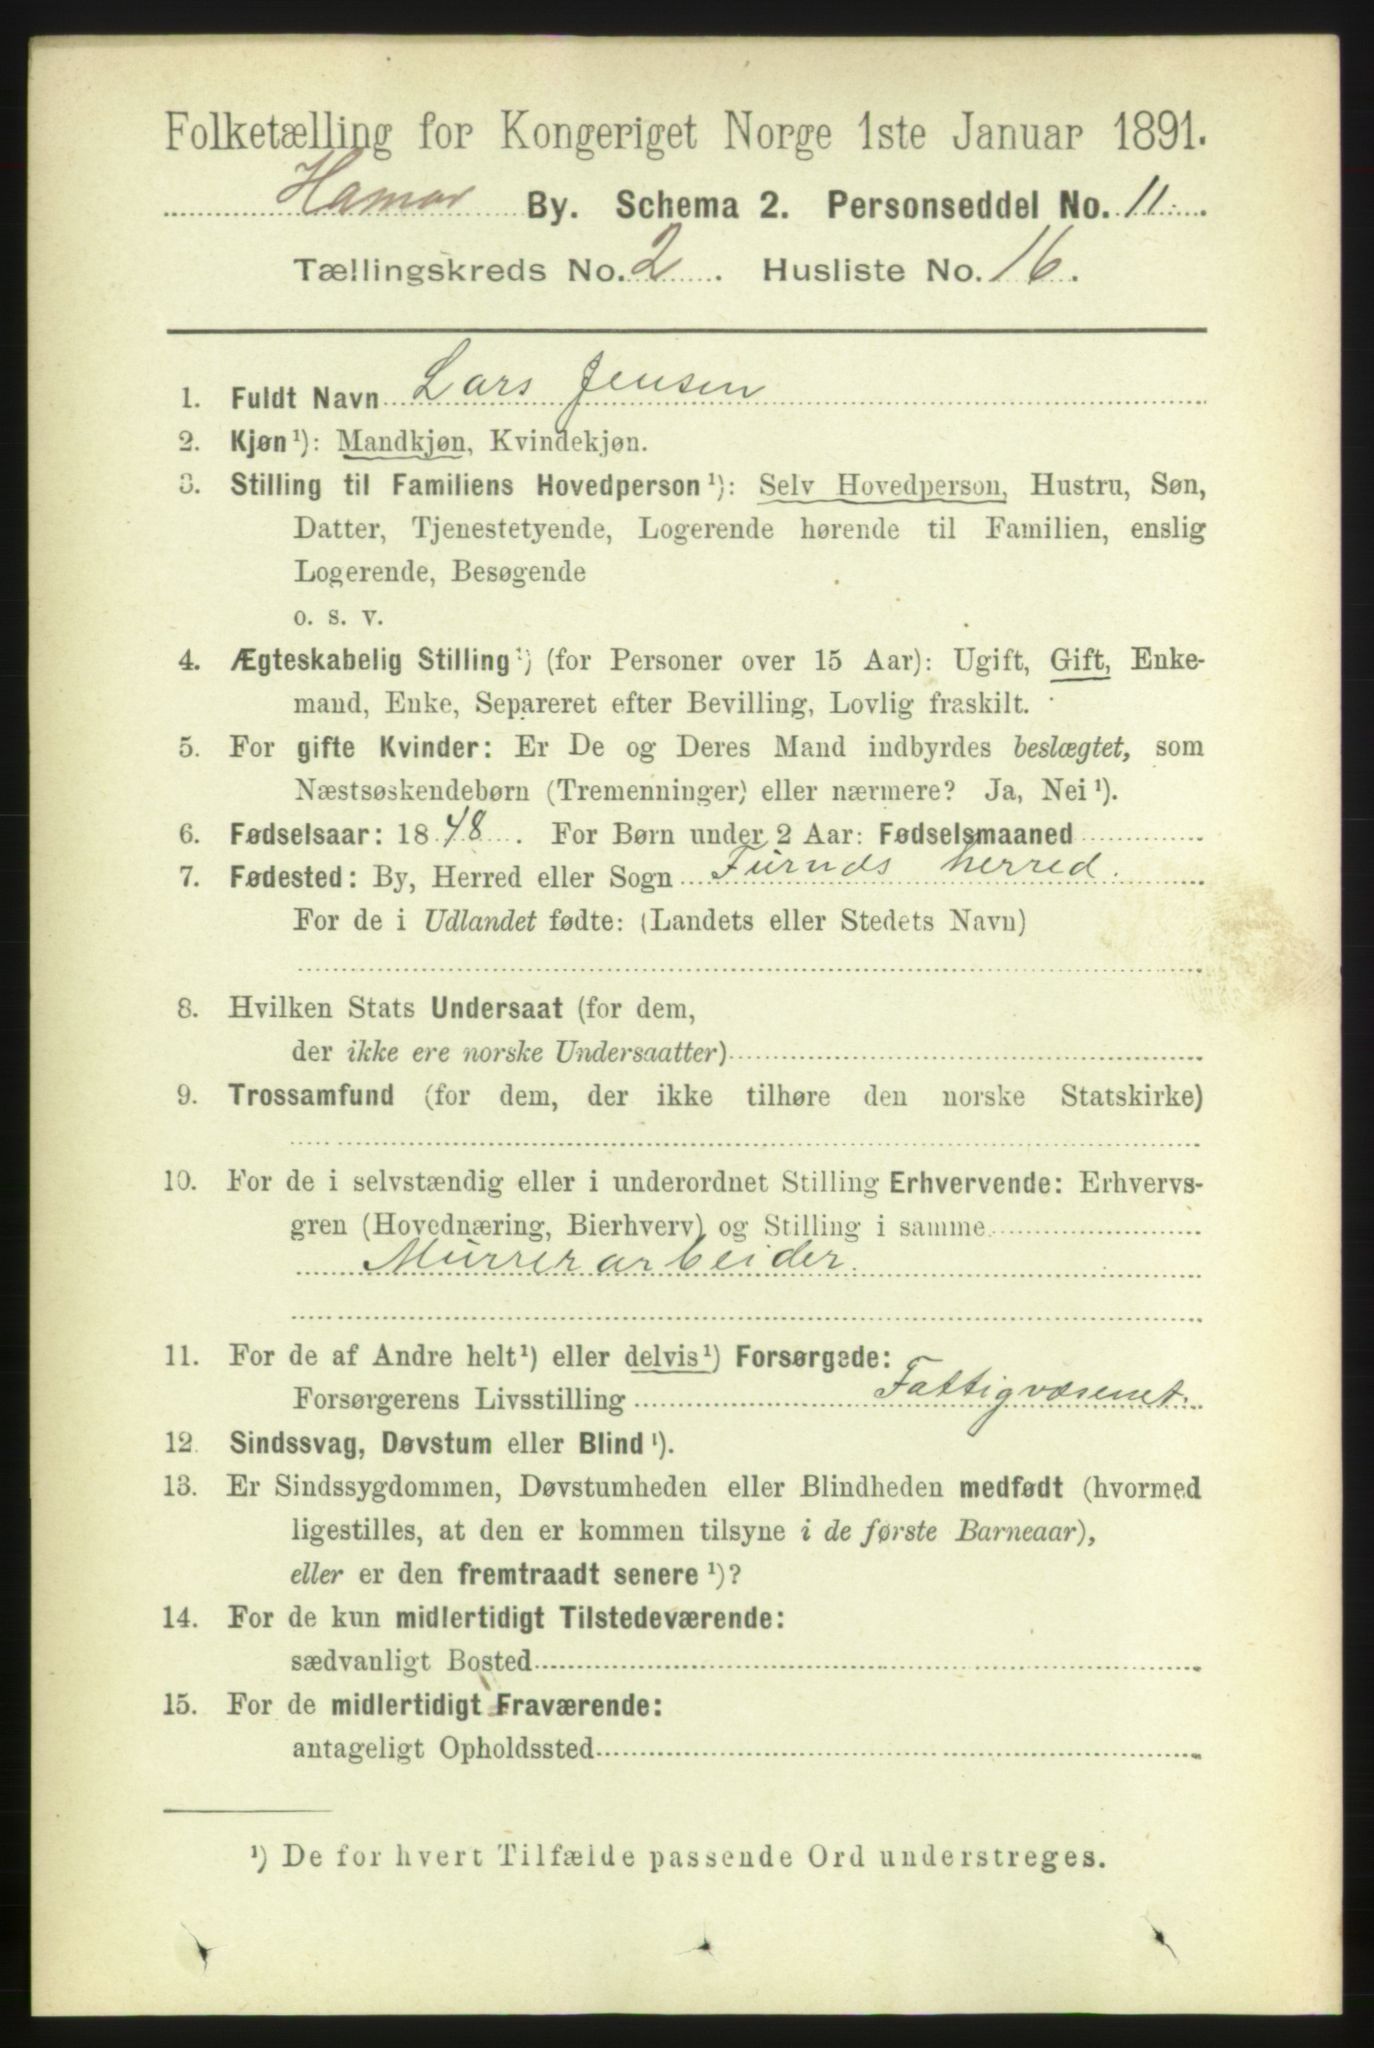 Folketælling for Kongeriget Norge 1ste Januar 1891.
Hamar By. Schema 2. Personseddel No. 11
Tællingskreds No. 2. Husliste No. 16.
1. Fuldt Navn Lars Jensen
2. Kjøn¹): Mandkjøn, Kvindekjøn.
3. Stilling til Familiens Hovedperson¹): Selv Hovedperson, Hustru, Søn,
Datter, Tjenestetyende, Logerende hørende til Familien, enslig
Logerende, Besøgende
o. s. v.
4. Ægteskabelig Stilling¹) (for Personer over 15 Aar): Ugift, Gift, Enke-
mand, Enke, Separeret efter Bevilling, Lovlig fraskilt.
5. For gifte Kvinder: Er De og Deres Mand indbyrdes beslægtet, som
Næstsøskendebørn (Tremenninger) eller nærmere? Ja, Nei¹).
6. Fødselsaar: 1848. For Børn under 2 Aar: Fødselsmaaned
7. Fødested: By, Herred eller Sogn Furnds herred.
For de i Udlandet fødte: (Landets eller Stedets Navn)
8. Hvilken Stats Undersaat (for dem,
der ikke ere norske Undersaatter)
9. Trossamfund (for dem, der ikke tilhøre den norske Statskirke)
10. For de i selvstændig eller i underordnet Stilling Erhvervende: Erhvervs-
gren (Hovednæring, Bierhverv) og Stilling i samme
Murrerarbeider.
11. For de af Andre helt¹) eller delvis¹) Forsørgede:
Forsørgerens Livsstilling Fattigvæsenet.
12. Sindssvag, Døvstum eller Blind¹).
13. Er Sindssygdommen, Døvstumheden eller Blindheden medfødt (hvormed
ligestilles, at den er kommen tilsyne i de første Barneaar),
eller er den fremtraadt senere¹)?
14. For de kun midlertidigt Tilstedeværende:
sædvanligt Bosted
15. For de midlertidigt Fraværende:
antageligt Opholdssted
¹) De for hvert Tilfælde passende Ord understreges.